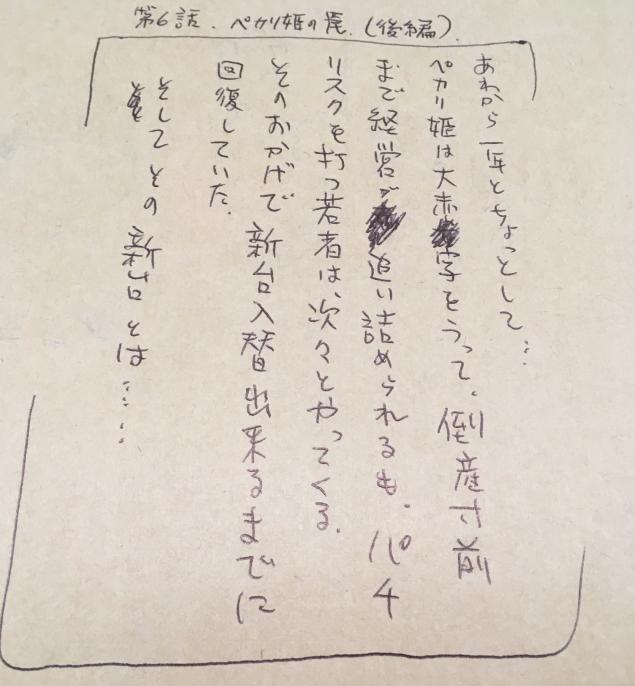 第6話.ペカリ姫の罠.(後編).
あれから一年とちょっとして…
ペカリ姫は大赤字をうって。倒産寸前
まで経営が追い詰められるも。パチ
リスクを打つ若者は、次々とやってくる.
そのおかげで新台入替出来るまでに
回復していた.
そしてその新台とは……